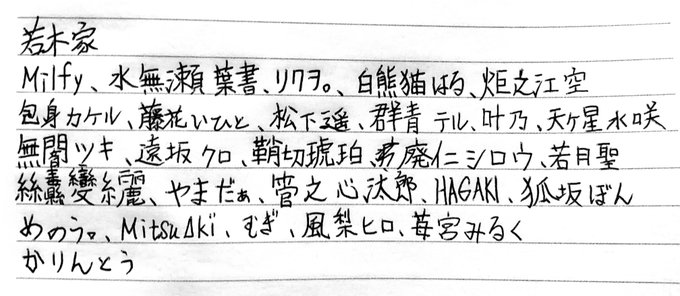 若木家
Milfy、水無瀬葉書、リクヲ。、白熊猫はる、炬之江空
包身カケル、藤花いひと、松下遥、群青テル、叶乃、天ヶ星水咲
無闇ツキ、遠坂クロ、鞘切琥珀、廃仁シロウ、若月聖
やまだぁ、菅之心汰郎、HAGAKI、狐坂ぽん
めのう。、MitsuAki、むぎ、風梨ヒロ、苺宮みるく
かりんとう